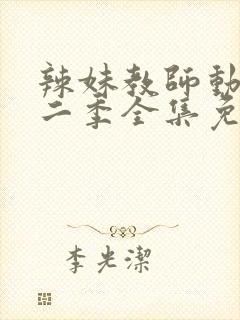 辣妹教師動
二季全集免
李光潔